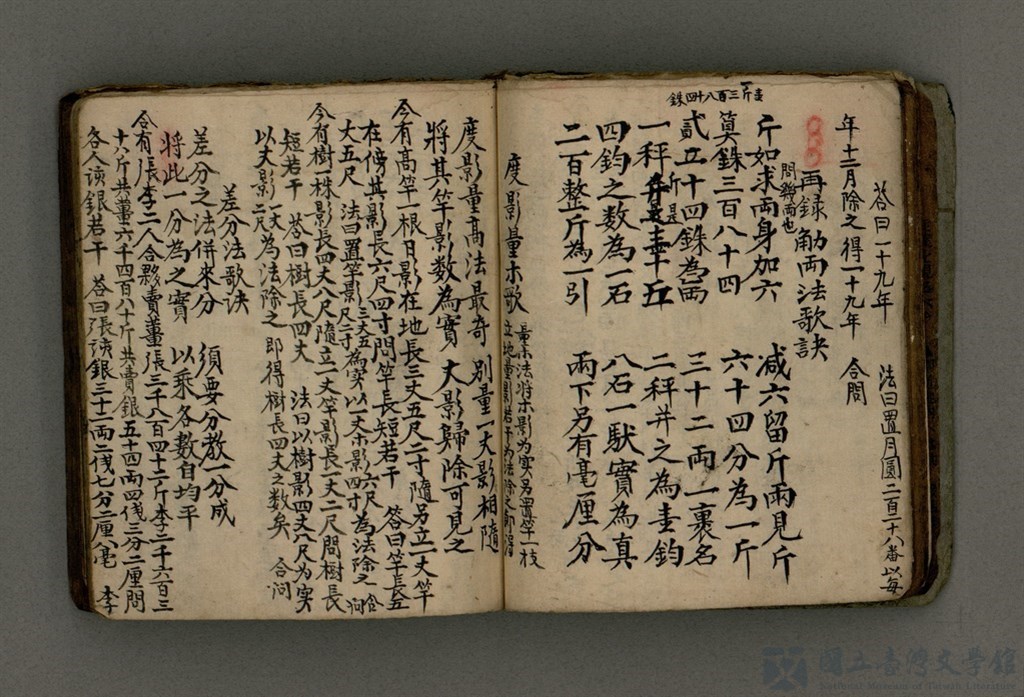 答曰一十九年 法曰置月圓二百二十八番以每
年十二月除之得一十九年 合問
再錄觔兩法歌訣
問幾兩也
斤如求兩身加六 減六留斤兩見斤
壹斤三百八十四銖
算銖三百八十四 六十四分為一斤
貳立十四銖為兩 三十二兩一裹名
一秤斤是壹十五 二秤并之為壹鈞
四鈞之数為一石 八石一馱實為真
二百整斤為一引 兩下另有毫厘分
度影量木歌 量木法將木影为实另置竿一枝
立地量影若干为法除之即得
度影量高法最奇 別量一丈影相隨
將其竿影数為實 大影歸除可見之
今有高竿一根日影在地長三丈五尺二寸隨另立一丈竿
在傍其影長六尺四寸問竿長短若干 答曰竿長五
丈五尺 法曰置竿影三丈五尺二寸為实以一丈木影六尺四寸為法除之合問
今有樹一株影長四丈八尺隨立一丈竿影長一丈二尺問樹長
短若干 答曰樹長四丈 法曰以樹影四丈八尺为实
以丈影一丈二尺為法除之即得樹長四丈之数矣 合问
差分法歌诀
差分之法併來分 須要分教一分成
將此一分為之實 以乘各數自均平
今有張李二人合夥賣薑張三千八百四十六斤李二千六百三
十六斤共薑六千四百八十斤共賣銀五十四兩四伐三分二厘問
各人該銀若干 答曰張該銀三十二兩二伐七分二厘八毫 李
國立臺灣文學館
National Museum of Taiwan Literature